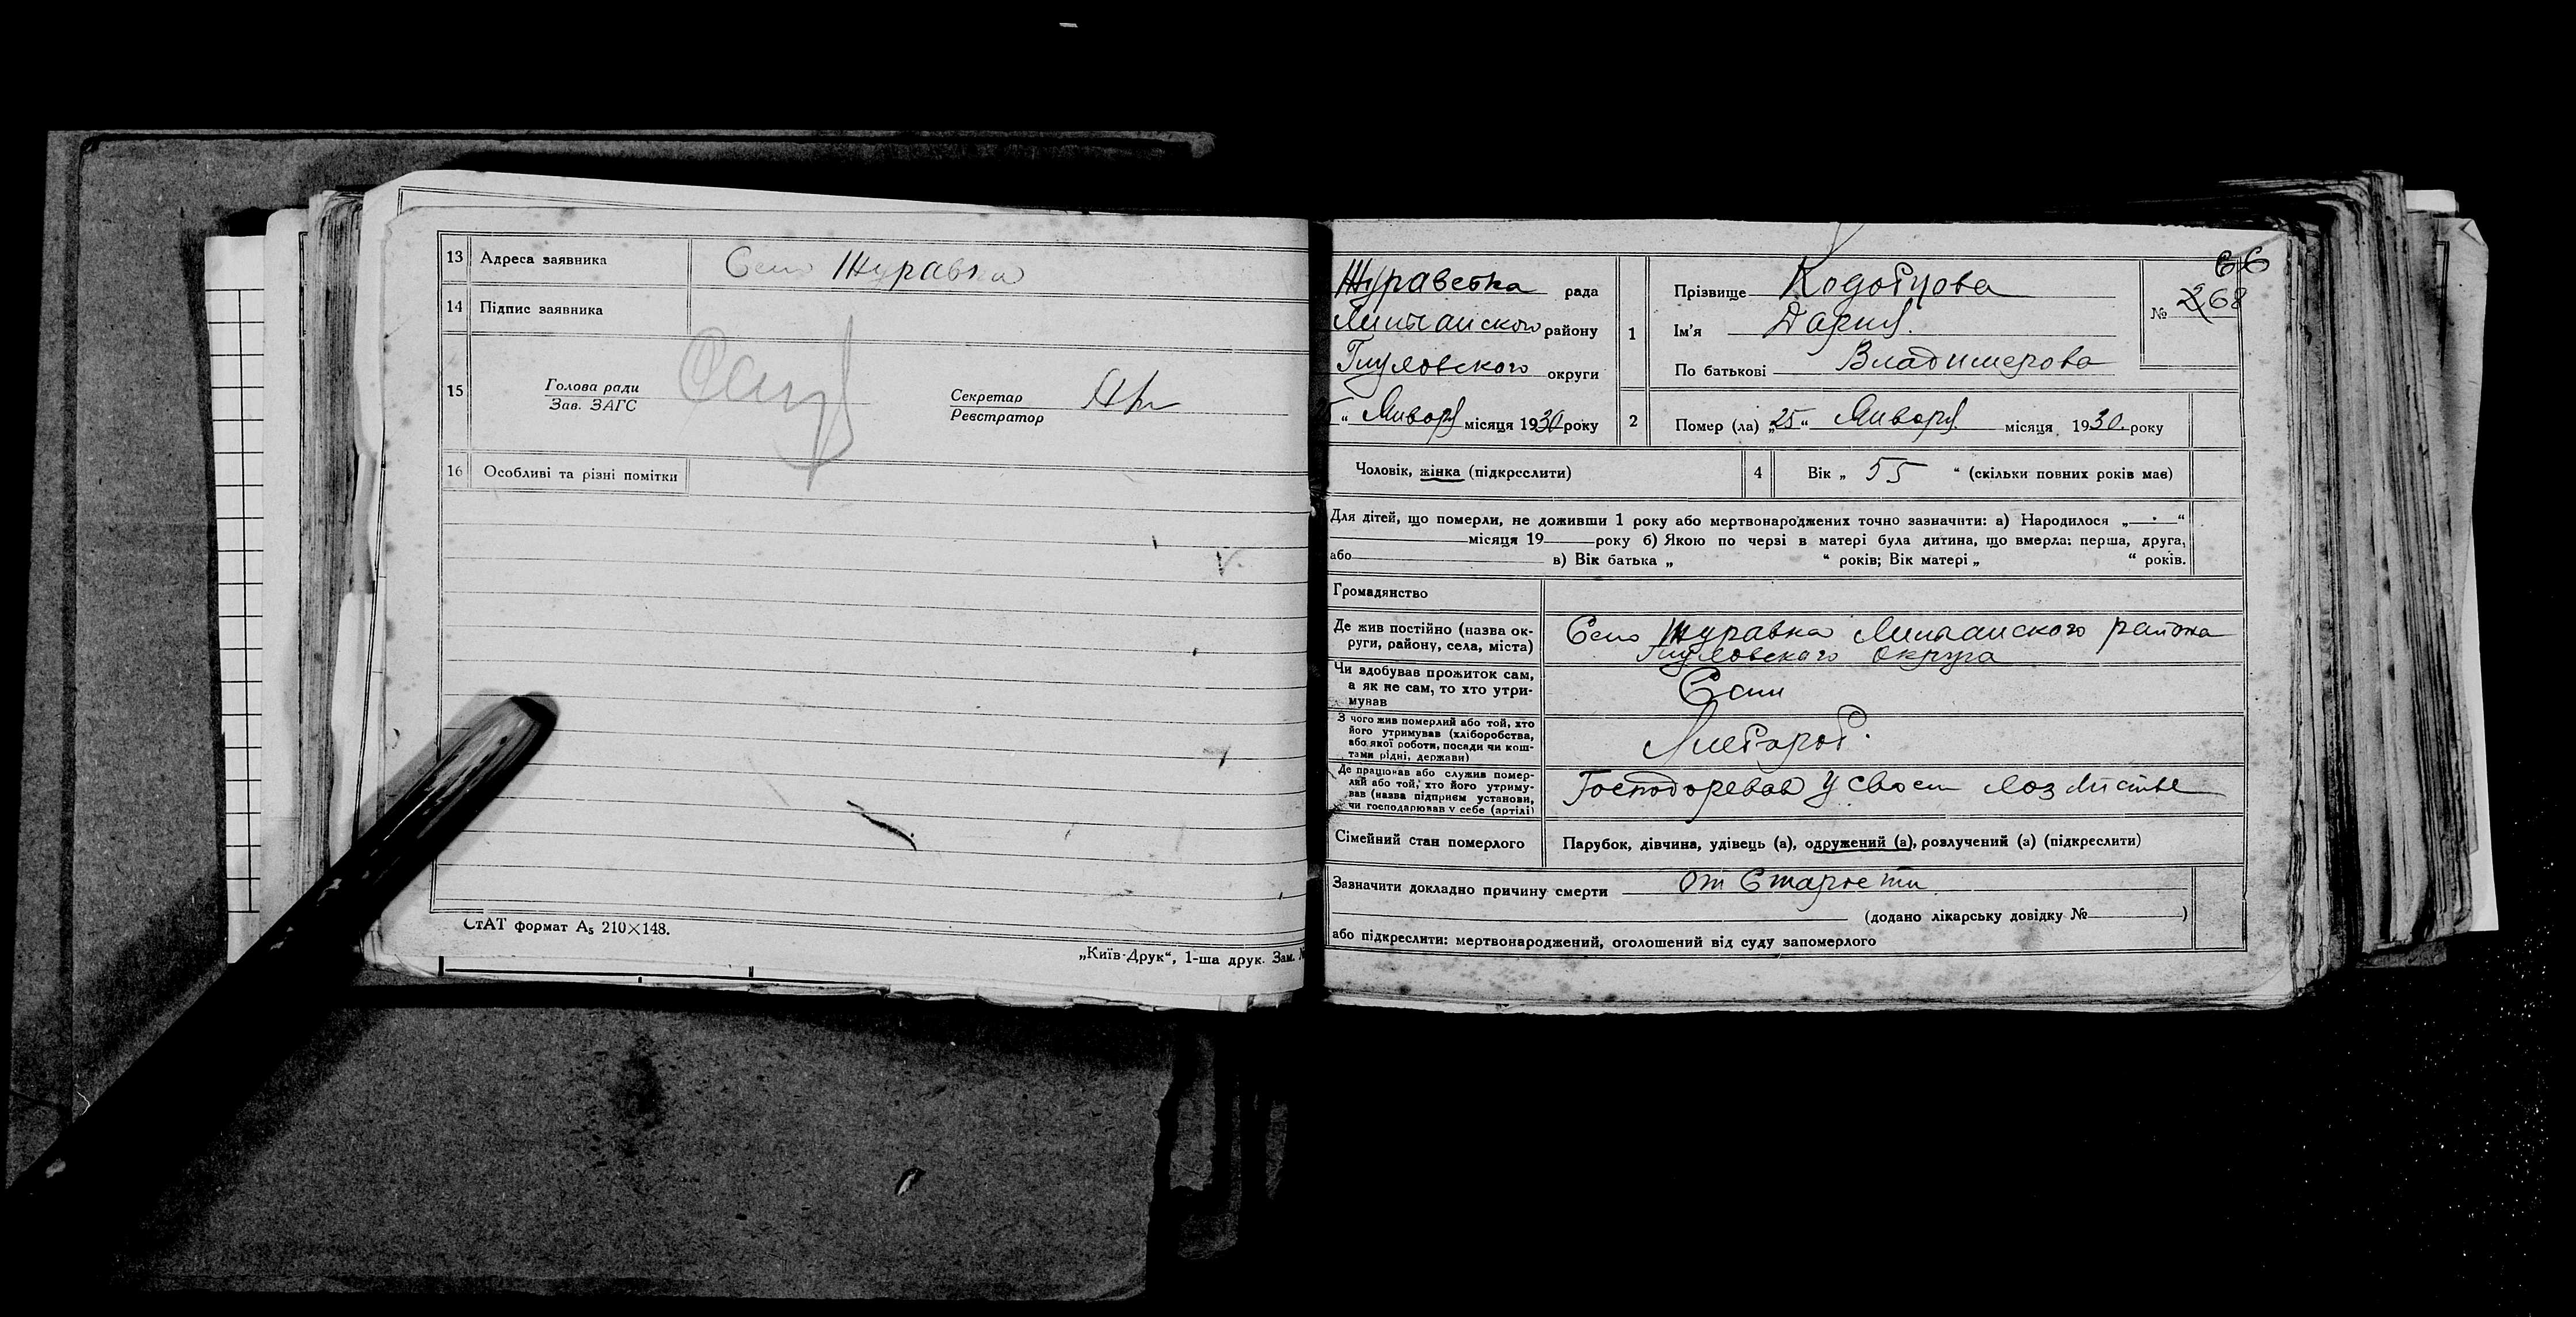 13 Адреса заявника Село Журавка
14 Підпис заявника
15 Голова ради
Зав. ЗАГС
Секретар
Реєстратор
16 Особливі та різні помітки
СтАТ формат А₅ 210×148.
„Київ-Друк“, 1-ша друк. Зам. №
66
Журавська рада
району
Глуховского округи
“ Январ місяця 1930 року
1 Прізвище
Ім'я Дария
По батькові Владимерова
№ 268
2 Помер (ла) „25“ Января місяця 1930. року
Чоловік, жінка (підкреслити)
4 Вік „ 55 “ (скільки повних років мав)
Для дітей, що померли, не доживши 1 року або мертвонароджених точно зазначити: а) Народилося „ “
місяця 19 року б) Якою по черзі в матері була дитина, що вмерла: перша, друга,
або в) Вік батька „ “ років; Вік матері „ “ років.
Громадянство
Де жив постійно (назва ок-
руги, району, села, міста)
Село Журавка района
Глуховского округа
Чи здобував прожиток сам,
а як не сам, то хто утри-
мував
Сам
З чого жив померлий або той, хто
його утримував (хліборобства,
або якої роботи, посади чи кош-
тами рідні, держави)
Де працював або служив помер-
лий або той, хто його утриму-
вав (назва підприєм установи,
чи господарював у себе (артілі)
у своем
Сімейний стан померлого
Парубок, дівчина, удівець (а), одружений (а), розлучений (а) (підкреслити)
Зазначити докладно причину смерти от Старости
(додано лікарську довідку № )
або підкреслити: мертвонароджений, оголошений від суду запомерлого